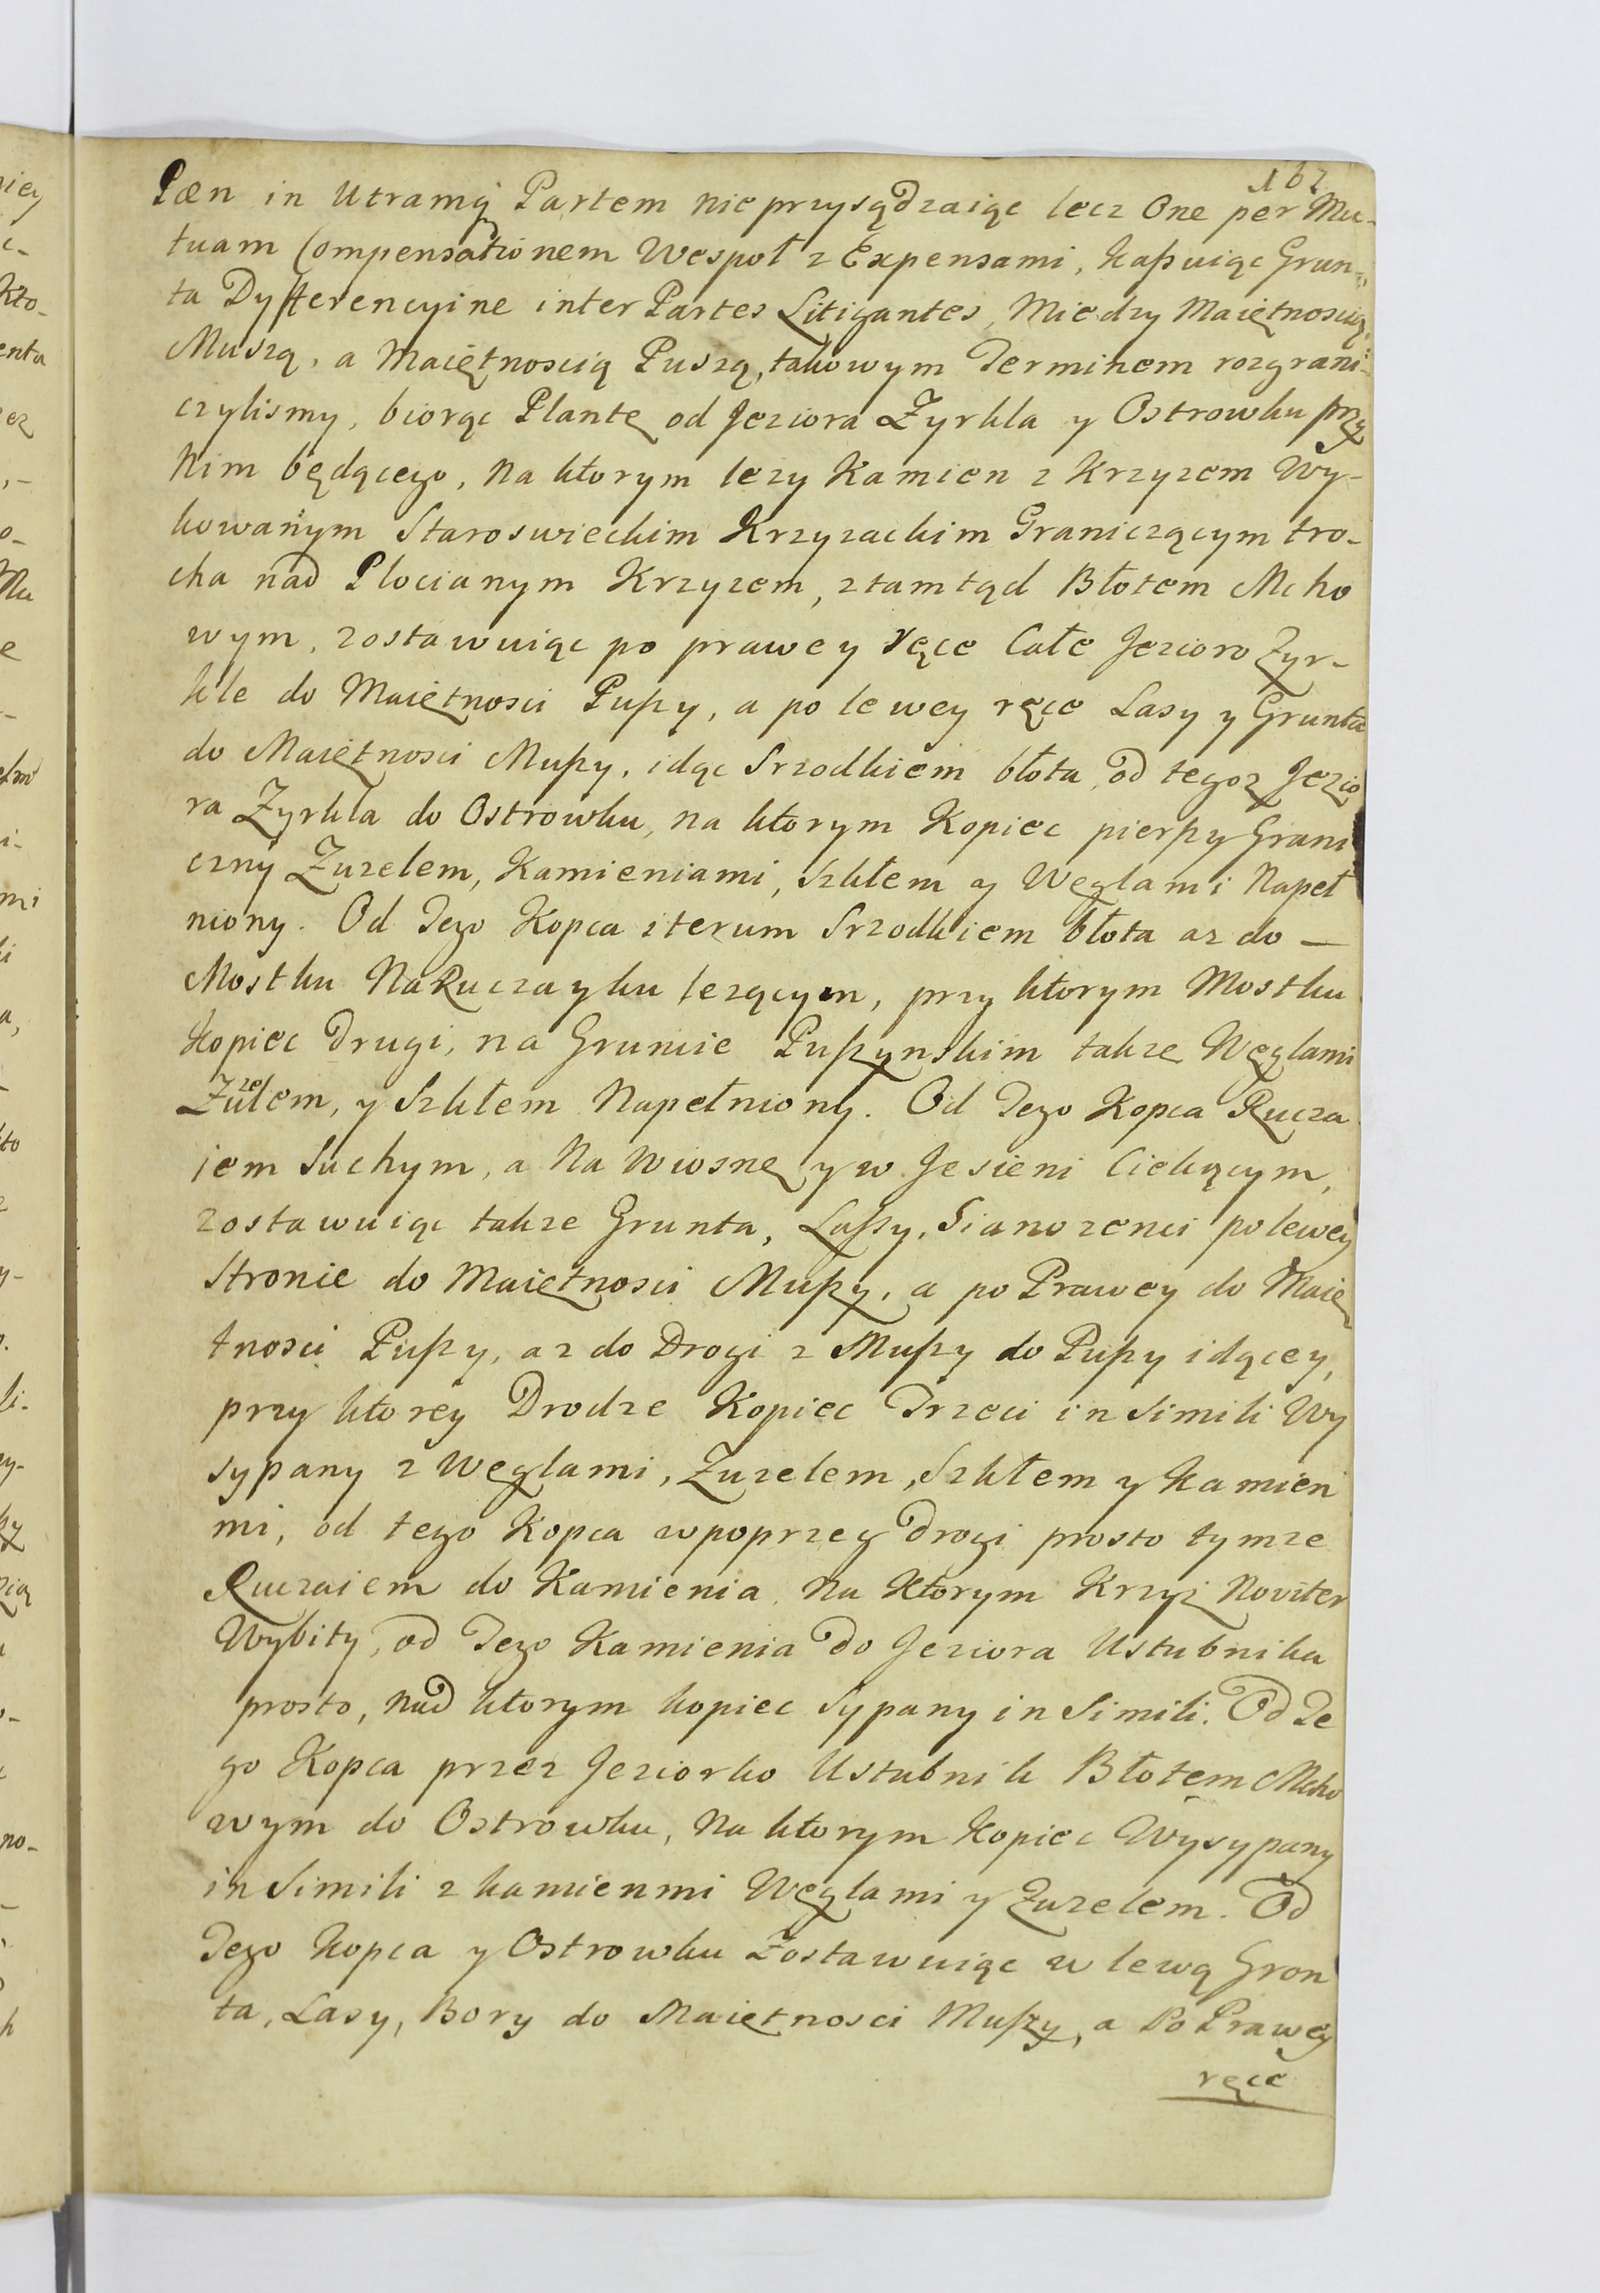 162
Pæn in Utramq Partem nieprzysądzaiąc lecz One per Mu-
tuam Compensationem Wespoł z Expensami, kaßuiąc Grun-
ta Dyfferencyine inter Partes Litigantes, Miedzy Maiętnoscią
Muszą, a Maiętnoscią Puszą, takowym Terminem rozgrani-
czylismy, biorąc Plantę od Jeziora Zyrkla y Ostrowku przy
Nim będącego, Na ktorym lezy Kamien z Krzyzem Wy-
kowanym Staroswieckim Krzyzackim Graniczącym tro-
cha nad Plocianym Krzyzem, ztamtąd Błotem Mcho
wym, zostawuiąc po prawey ręce Całe Jezioro Zyr-
kle do Maiętnosci Pußy, a po lewey ręce Lasy y Grunta
do Maiętnosci Mußy, idąc Srzodkiem błota od tegoz Jezio
ra Zyrkla do Ostrowku, na ktorym Kopiec pierßy Grani
czny Zuzelem, Kamieniami, Szkłem y Węglami Napeł
niony. Od Tego Kopca iterum Srzodkiem błota az do —
Mostku Na Ruczayku lezącym, przy ktorym Mostku
Kopiec drugi, na Gruncie Pußynskim takze Węglami
Zuzelem, y Szkłem Napełniony. Od Tego Kopca Rucza
iem Suchym, a Na Wiosnę y w Jesieni Ciekącym,
zostawuiąc takze Grunta, Laßy, Sianozenci po lewey
Stronie do Maiętnosci Mußy, a po Prawey do Maię
tnosci Pußy, az do Drogi z Mußy do Pußy idącey,
przy ktorey Drodze Kopiec Trzeci in Simili Wy
sypany z Węglami, Zuzelem, Szkłem y Kamien
mi, od tego Kopca wpoprzeg drogi prosto tymze
Ruczaiem do Kamienia Na Ktorym Krzyz Noviter
Wybity, od Tego Kamienia do Jeziora Ustubnika
prosto, Nad ktorym kopiec Sypany in Simili. Od Te
go Kopca przez Jeziorko Ustubnik Błotem Mcho
wym do Ostrowku, Na ktorym Kopiec Wysypany
in Simili z kamienmi Węglami y Zuzelem. Od
Tego Kopca y Ostrowku Zostawuiąc w lewą Gron
ta, Lasy, Bory do Maiętnosci Mußy, a Po Prawey
ręce